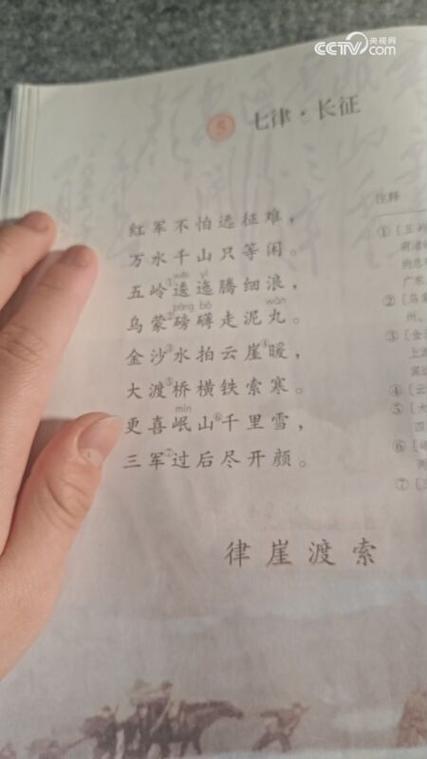 CCTV.com 央视网
5 七律·长征
红军不怕远征难，
万水千山只等闲。
wēi yí
五岭①逶迤腾细浪，
páng bó wán
乌蒙②磅礴走泥丸。
金沙③水拍云崖④暖，
大渡⑤桥横铁索寒。
mín
更喜岷山⑥千里雪，
三军⑦过后尽开颜。
律崖渡索
注释
①〔五岭
广东
②〔乌
州、
③〔金
④〔云
⑤〔大
⑥
⑦